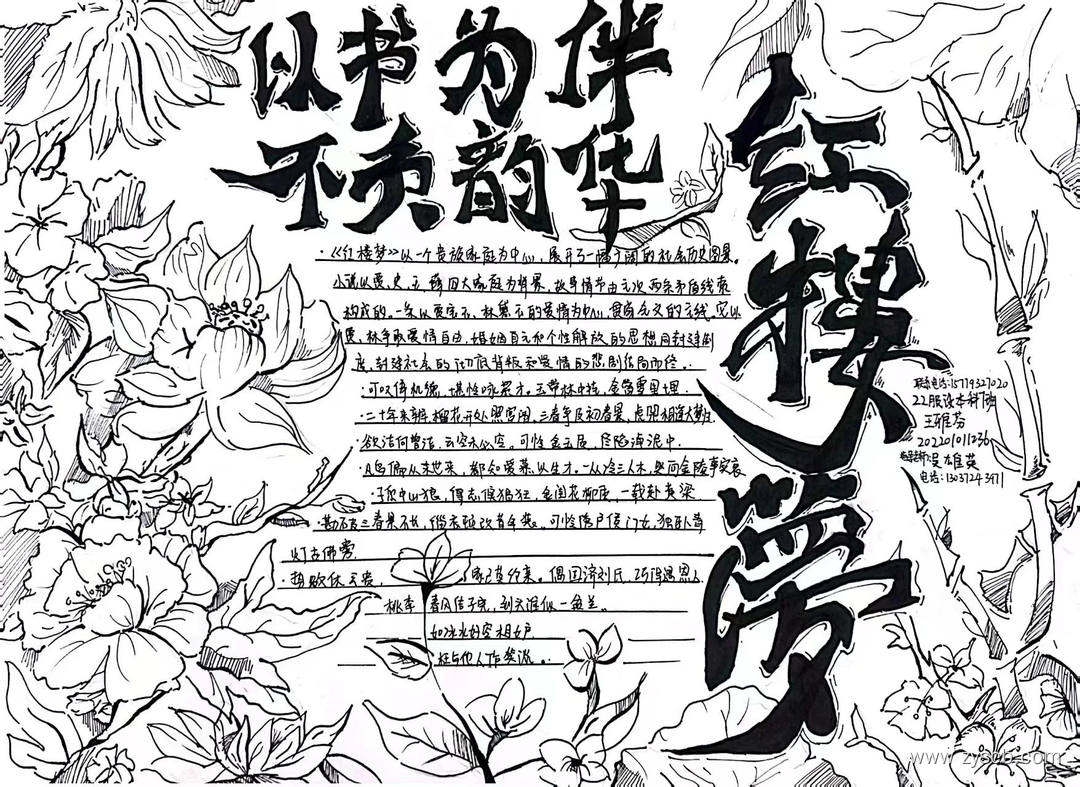 以书为伴
不负韵华
红楼梦
·《红楼梦》以一个贵族家庭为中心，展开了一幅广阔的社会历史图景。
小说以贾、史、王、薛四大家庭为背景，故事情节由主次两条矛盾线索
构成的。一条以贾宝玉、林黛玉的爱情为中心，贯穿全文的主线，它以
贾、林争取爱情自由、婚姻自主和个性解放的思想同封建制
度、封建社会的彻底背叛和爱情的悲剧结局而终。
·可叹停机德，堪怜咏絮才。玉带林中挂，金簪雪里埋.
·二十年来辨，榴花开处照宫闱，三春争及初春景，虎兕相逢大梦归
·欲洁何曾洁，云空未必空。可怜金玉质，终陷淖泥中.
·凡鸟偏从末世来，都知爱慕此生才。一从冷三人木，哭向金陵事哀
·子系中山狼，得志便猖狂，金闺花柳质，一载赴黄梁
·勘不破三春景不长，缁衣顿改昔年装。可怜绣户侯门女，独卧
灯古佛旁
·势败休云贵，
偶因济刘氏，巧得遇恩人
桃李春风结子完，到头谁似一盆兰。
如冰水好空相妒
枉与他人作笑谈。
联系电话:15719327020
22服设本科1班
王雅芬
202201011236
指导老师:吴雄英
电话:13037243971
www.zyscb.com